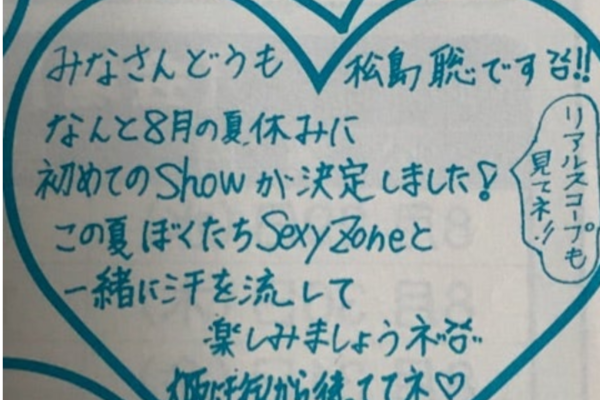 みなさんどうも 松島聡です!!
なんと8月の夏休みに
初めてのShowが決定しました!
この夏ぼくたちSexyZoneと
一緒に汗を流して
楽しみましょうネ
から待っててネ♡
リアルスコープも
見てネ!!